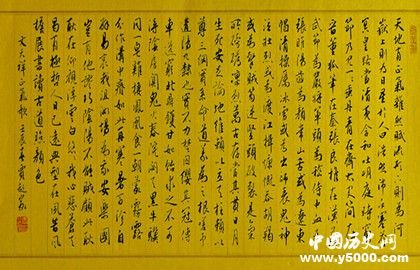 天地有正氣雜然賦流形下則為河
嶽上則為日星於人曰浩然沛乎塞蒼
冥皇路當清夷含和吐明庭時窮
節乃見一一垂丹青在齊太史簡在
晉董狐筆在秦張良椎在漢蘇
武節為嚴將軍頭為嵇侍中血為
張睢陽齒為顏常山舌或為遼東
帽清操厲冰雪或為出師表鬼神
泣壯烈或為渡江楫慷慨吞胡羯
或為擊賊笏逆豎頭破裂是氣所
磅礴凜烈萬古存當其貫日月
生死安足論地維賴以立天柱賴以
尊三綱實係命道義為之根嗟予
遘陽九隸也實不力楚囚纓其冠傳
車送窮北鼎鑊甘如飴求之不可
得陰房闃鬼火春院閟天黑牛驥
同一皂雞棲鳳凰食一朝蒙霧露
分作溝中瘠如此再寒暑百沴自
辟易哀哉沮洳場為我安樂國
豈有他繆巧陰陽不能賊顧此耿
耿在仰視浮雲白悠悠我心悲蒼天
曷有極哲人日已遠典型在夙昔風
檐展書讀古道照顏色
文天祥正氣歌 壬辰
中国历史网
www.y5000.com